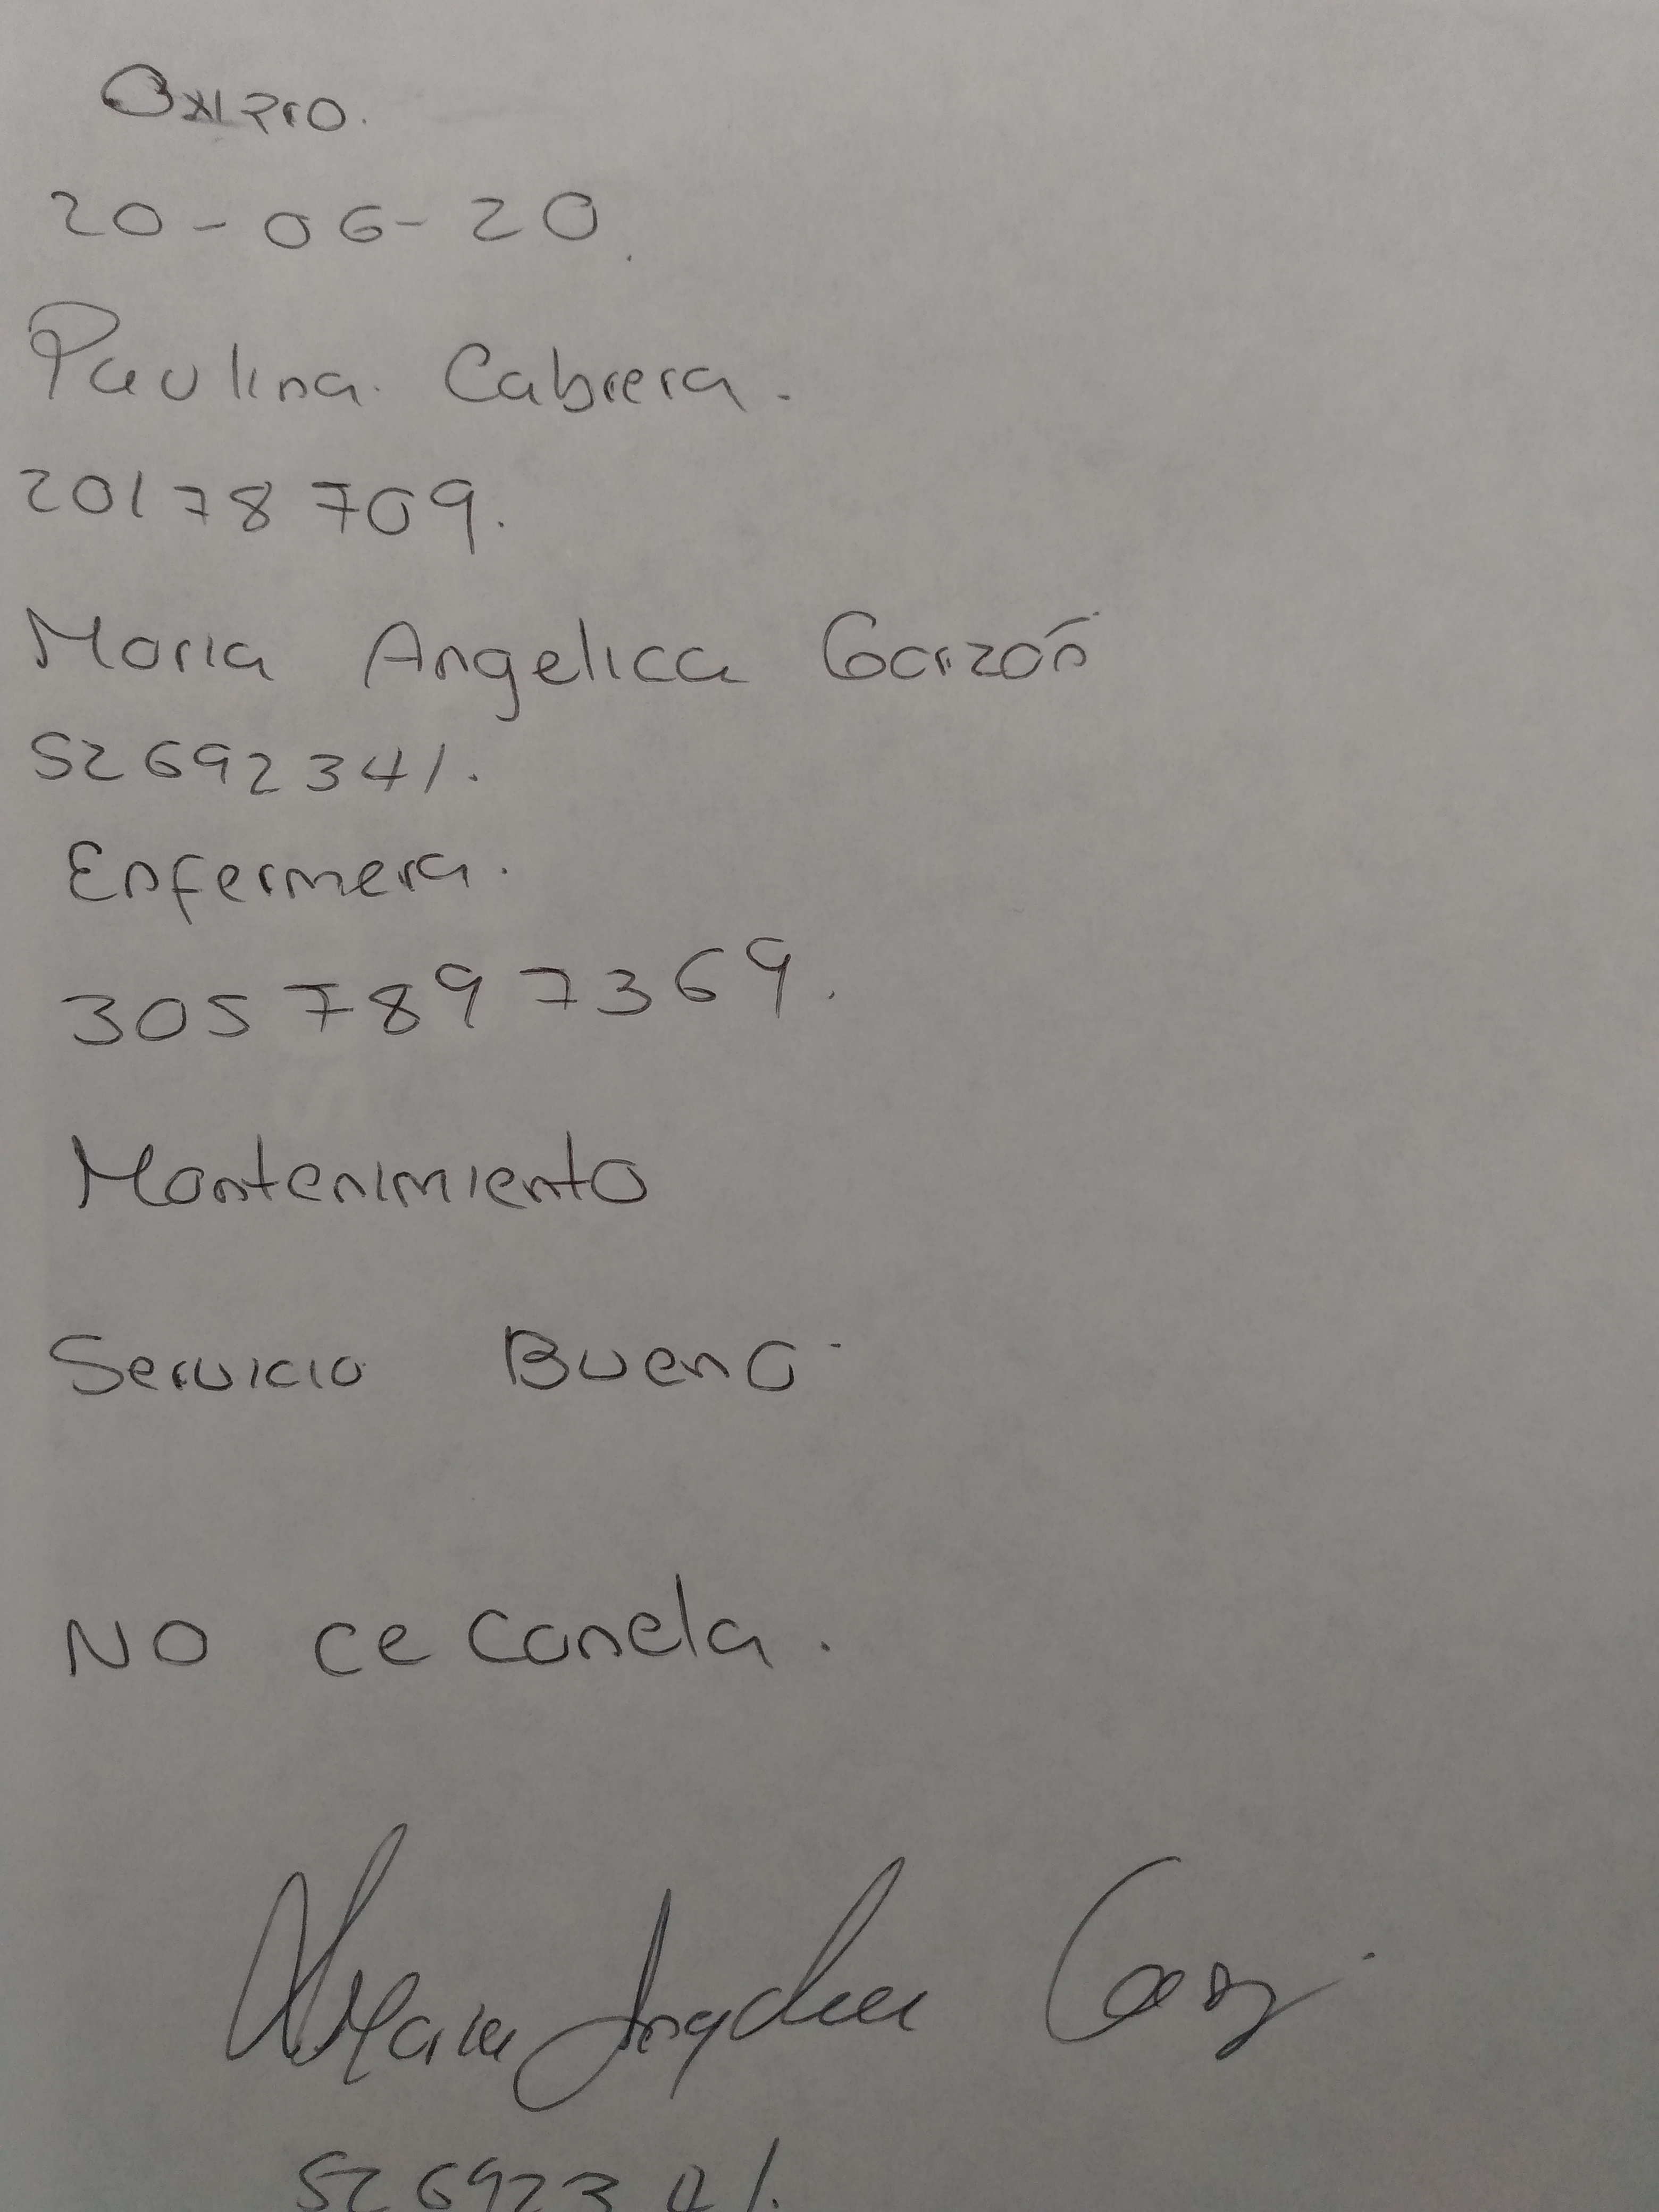 OxiPro.
20-06-20.
Paulina Cabrera.
20178709.
Maria Angelica Garzón
52692341.
Enfermera.
3057897369.
Mantenimiento
Servicio Bueno.
NO ce Canela.
Maria Angelica Garz
52692341.